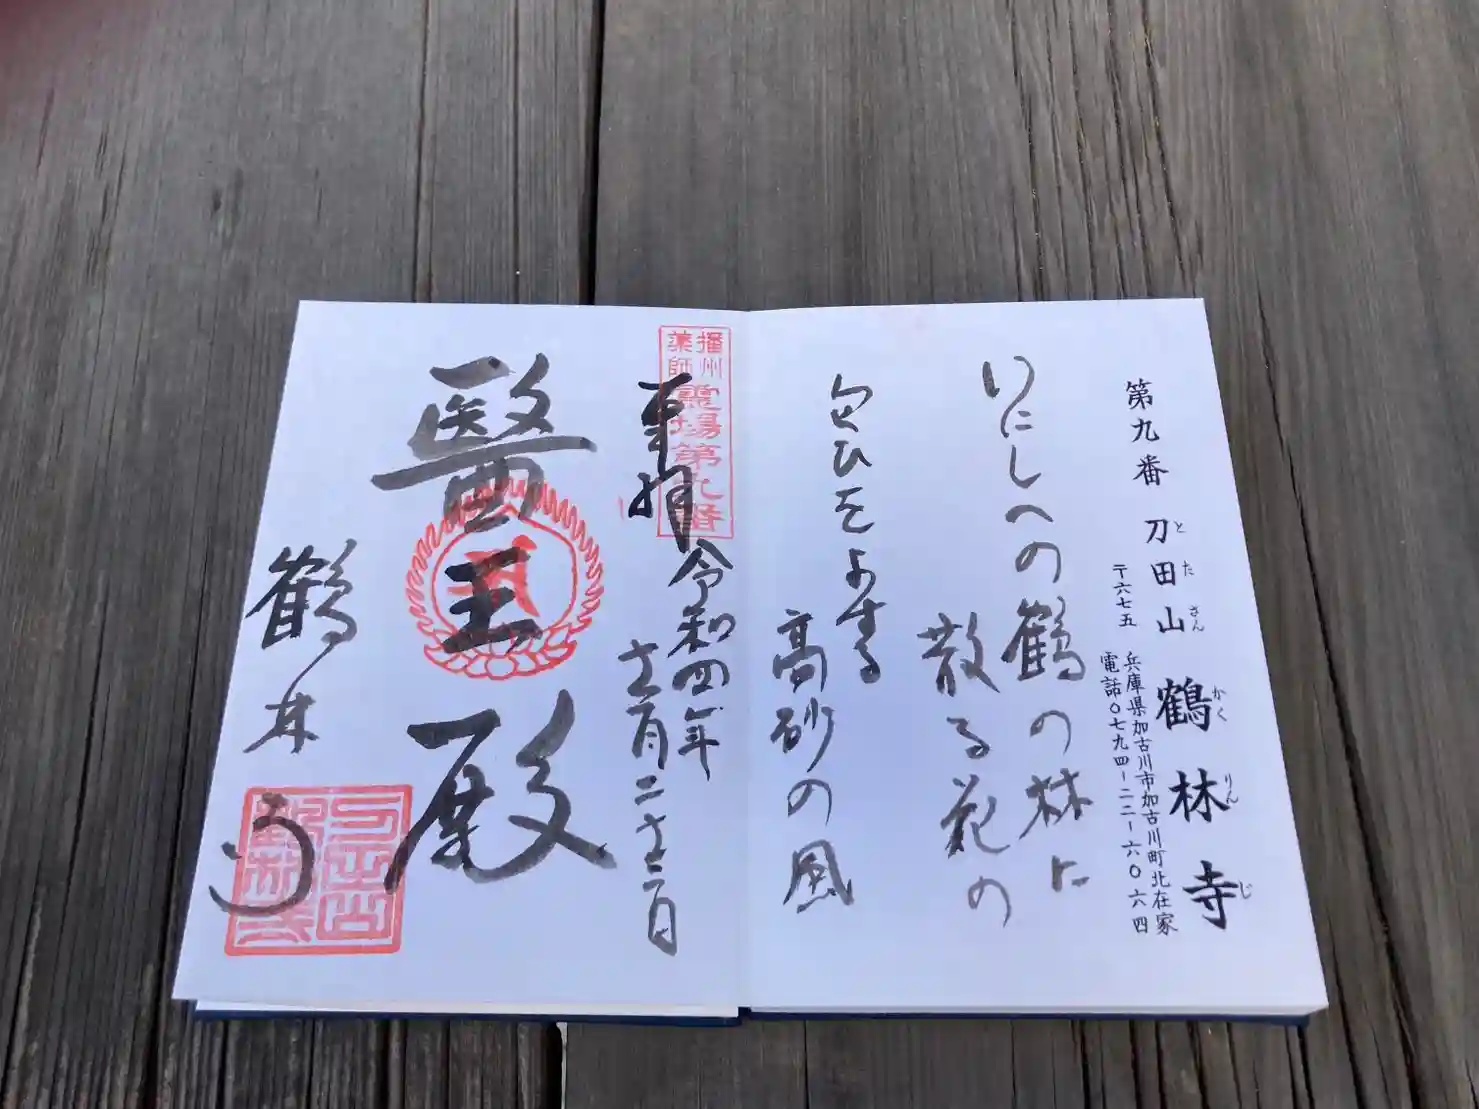 第九番 刀田山 鶴林寺
とたさん かくりんじ
〒六七五 兵庫県加古川市加古川町北在家
電話〇七九四-二二-六〇六四
いにしへの鶴の林に
散る花の
匂ひをよする
高砂の風
播州
薬師
霊場第九番
奉拝
令和四年
十二月二十三日
醫王殿
鶴林寺